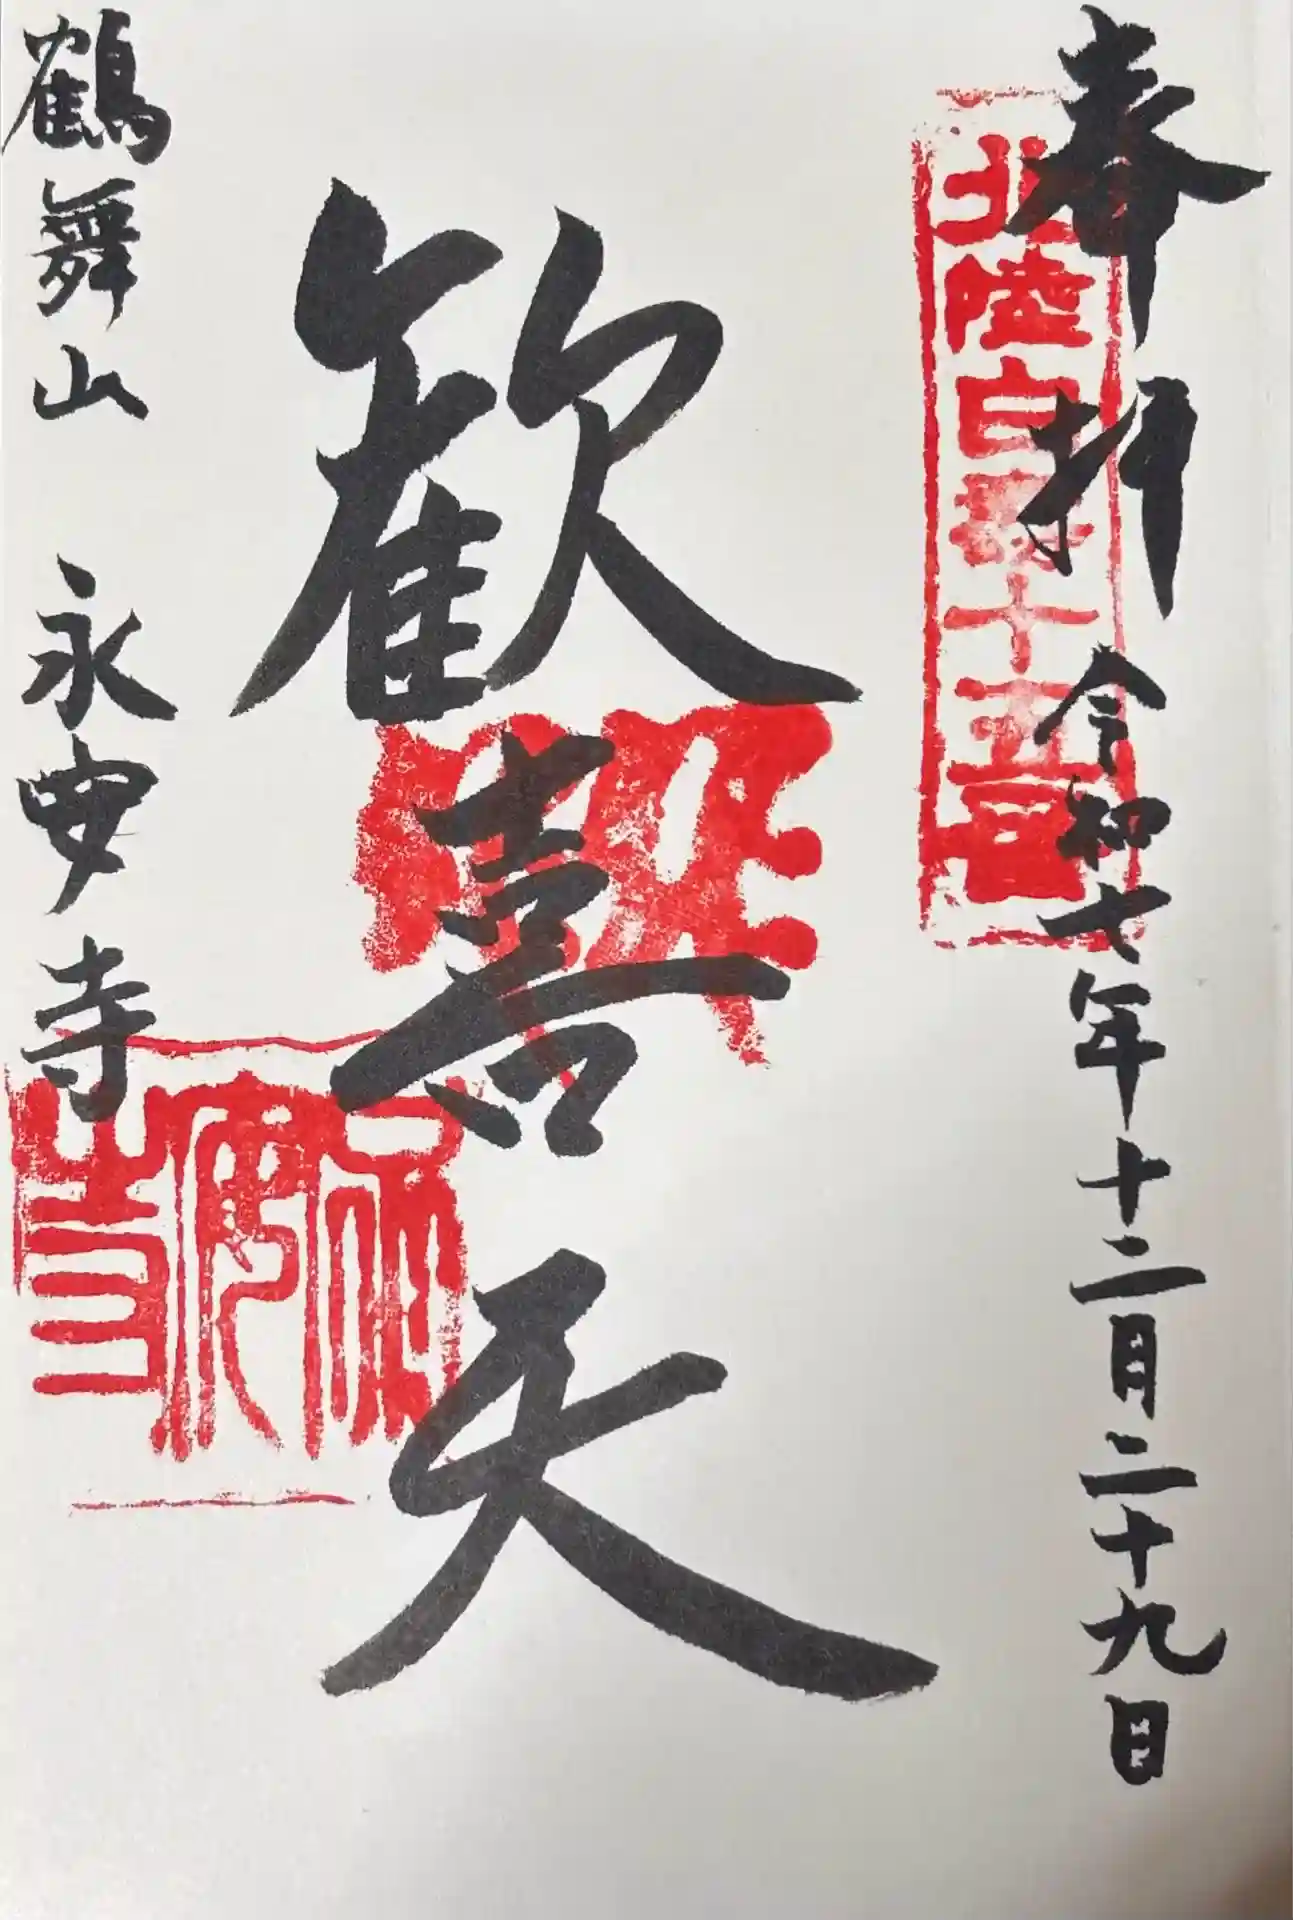 奉拝
令和七年十二月二十九日
北陸白寿十五
歓喜天
鶴舞山 永安寺